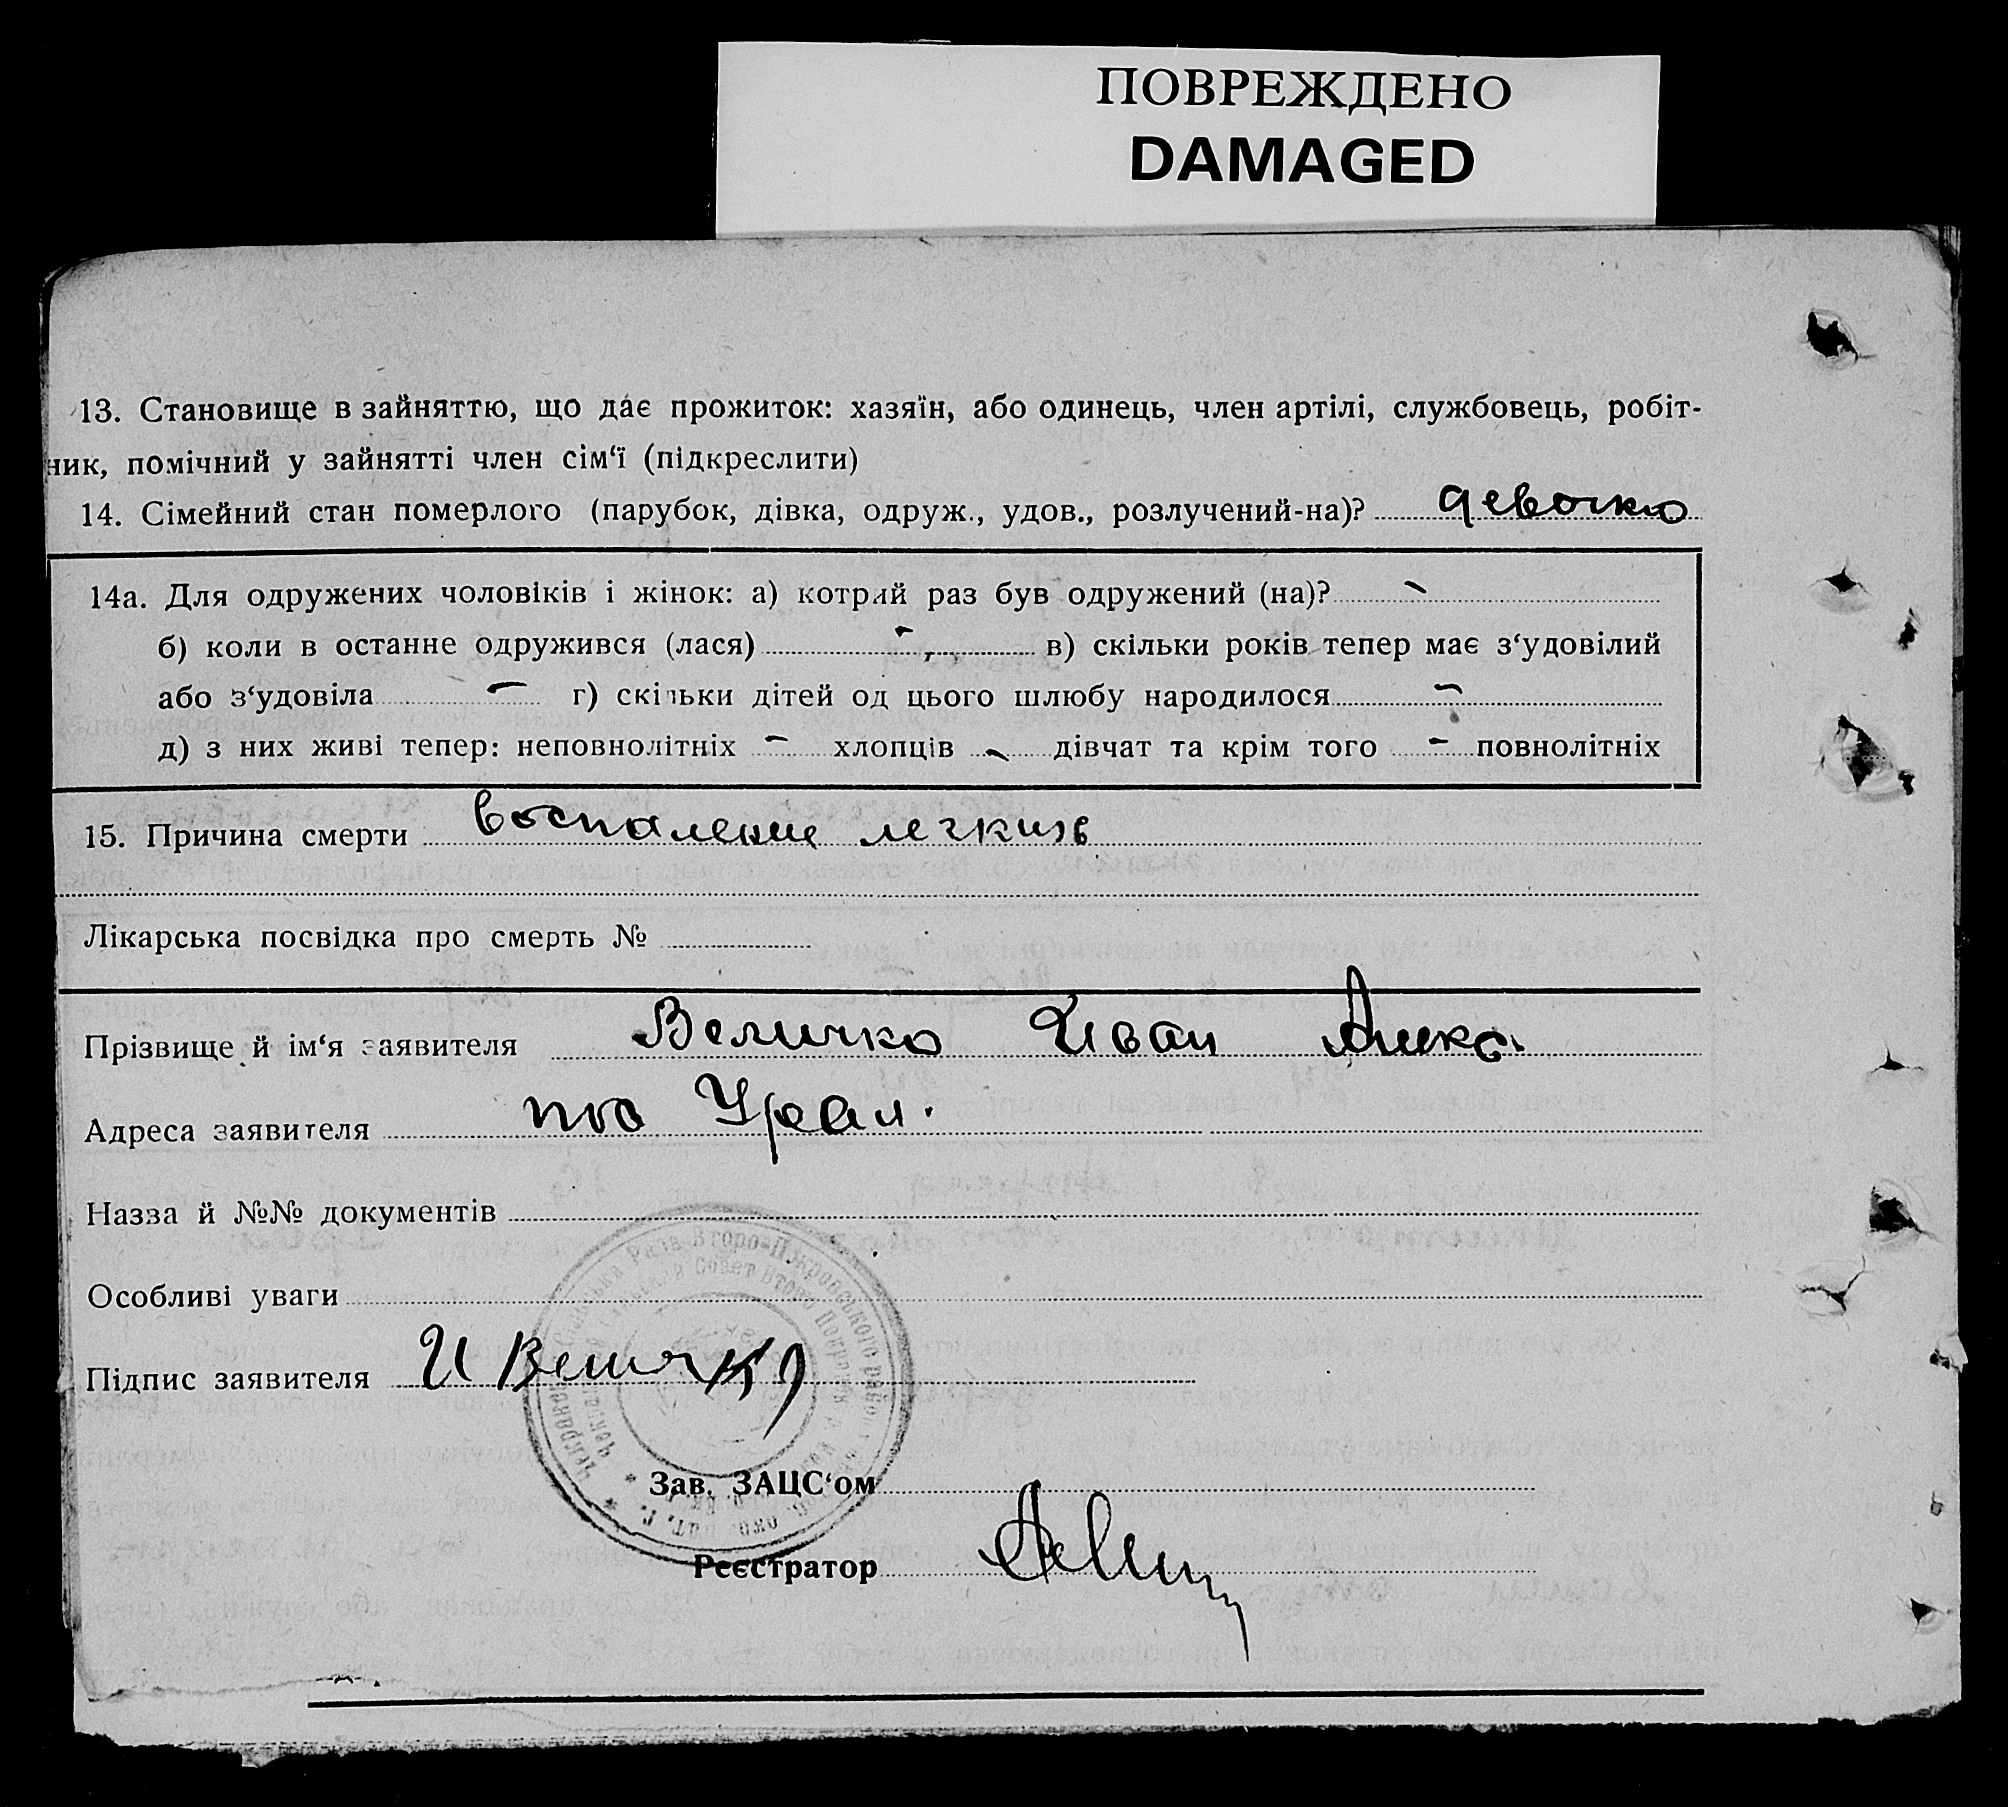 ПОВРЕЖДЕНО
DAMAGED
13. Становище в зайняттю, що дає прожиток: хазяїн, або одинець, член артілі, службовець, робіт-
ник, помічний у зайнятті член сім‘ї (підкреслити)
14. Сімейний стан померлого (парубок, дівка, одруж., удов., розлучений-на)? девочко
14а. Для одружених чоловіків і жінок: а) котрий раз був одружений (на)? -
б) коли в останне одружився (лася) - в) скільки років тепер має з‘удовілий
або з‘удовіла - г) скільки дітей од цього шлюбу народилося -
д) з них живі тепер: неповнолітніх - хлопців - дівчат та крім того - повнолітніх
15. Причина смерти воспаление легкихъ
Лікарська посвідка про смерть №
Прізвище й ім‘я заявителя Величко Иван Алекс.
Адреса заявителя Урал.
Назва й №№ документів
Особливі уваги
Підпис заявителя И Величко
Рада Второ-Покровського
Совет Второ Покровск
Зав. ЗАЦС‘ом
Реєстратор